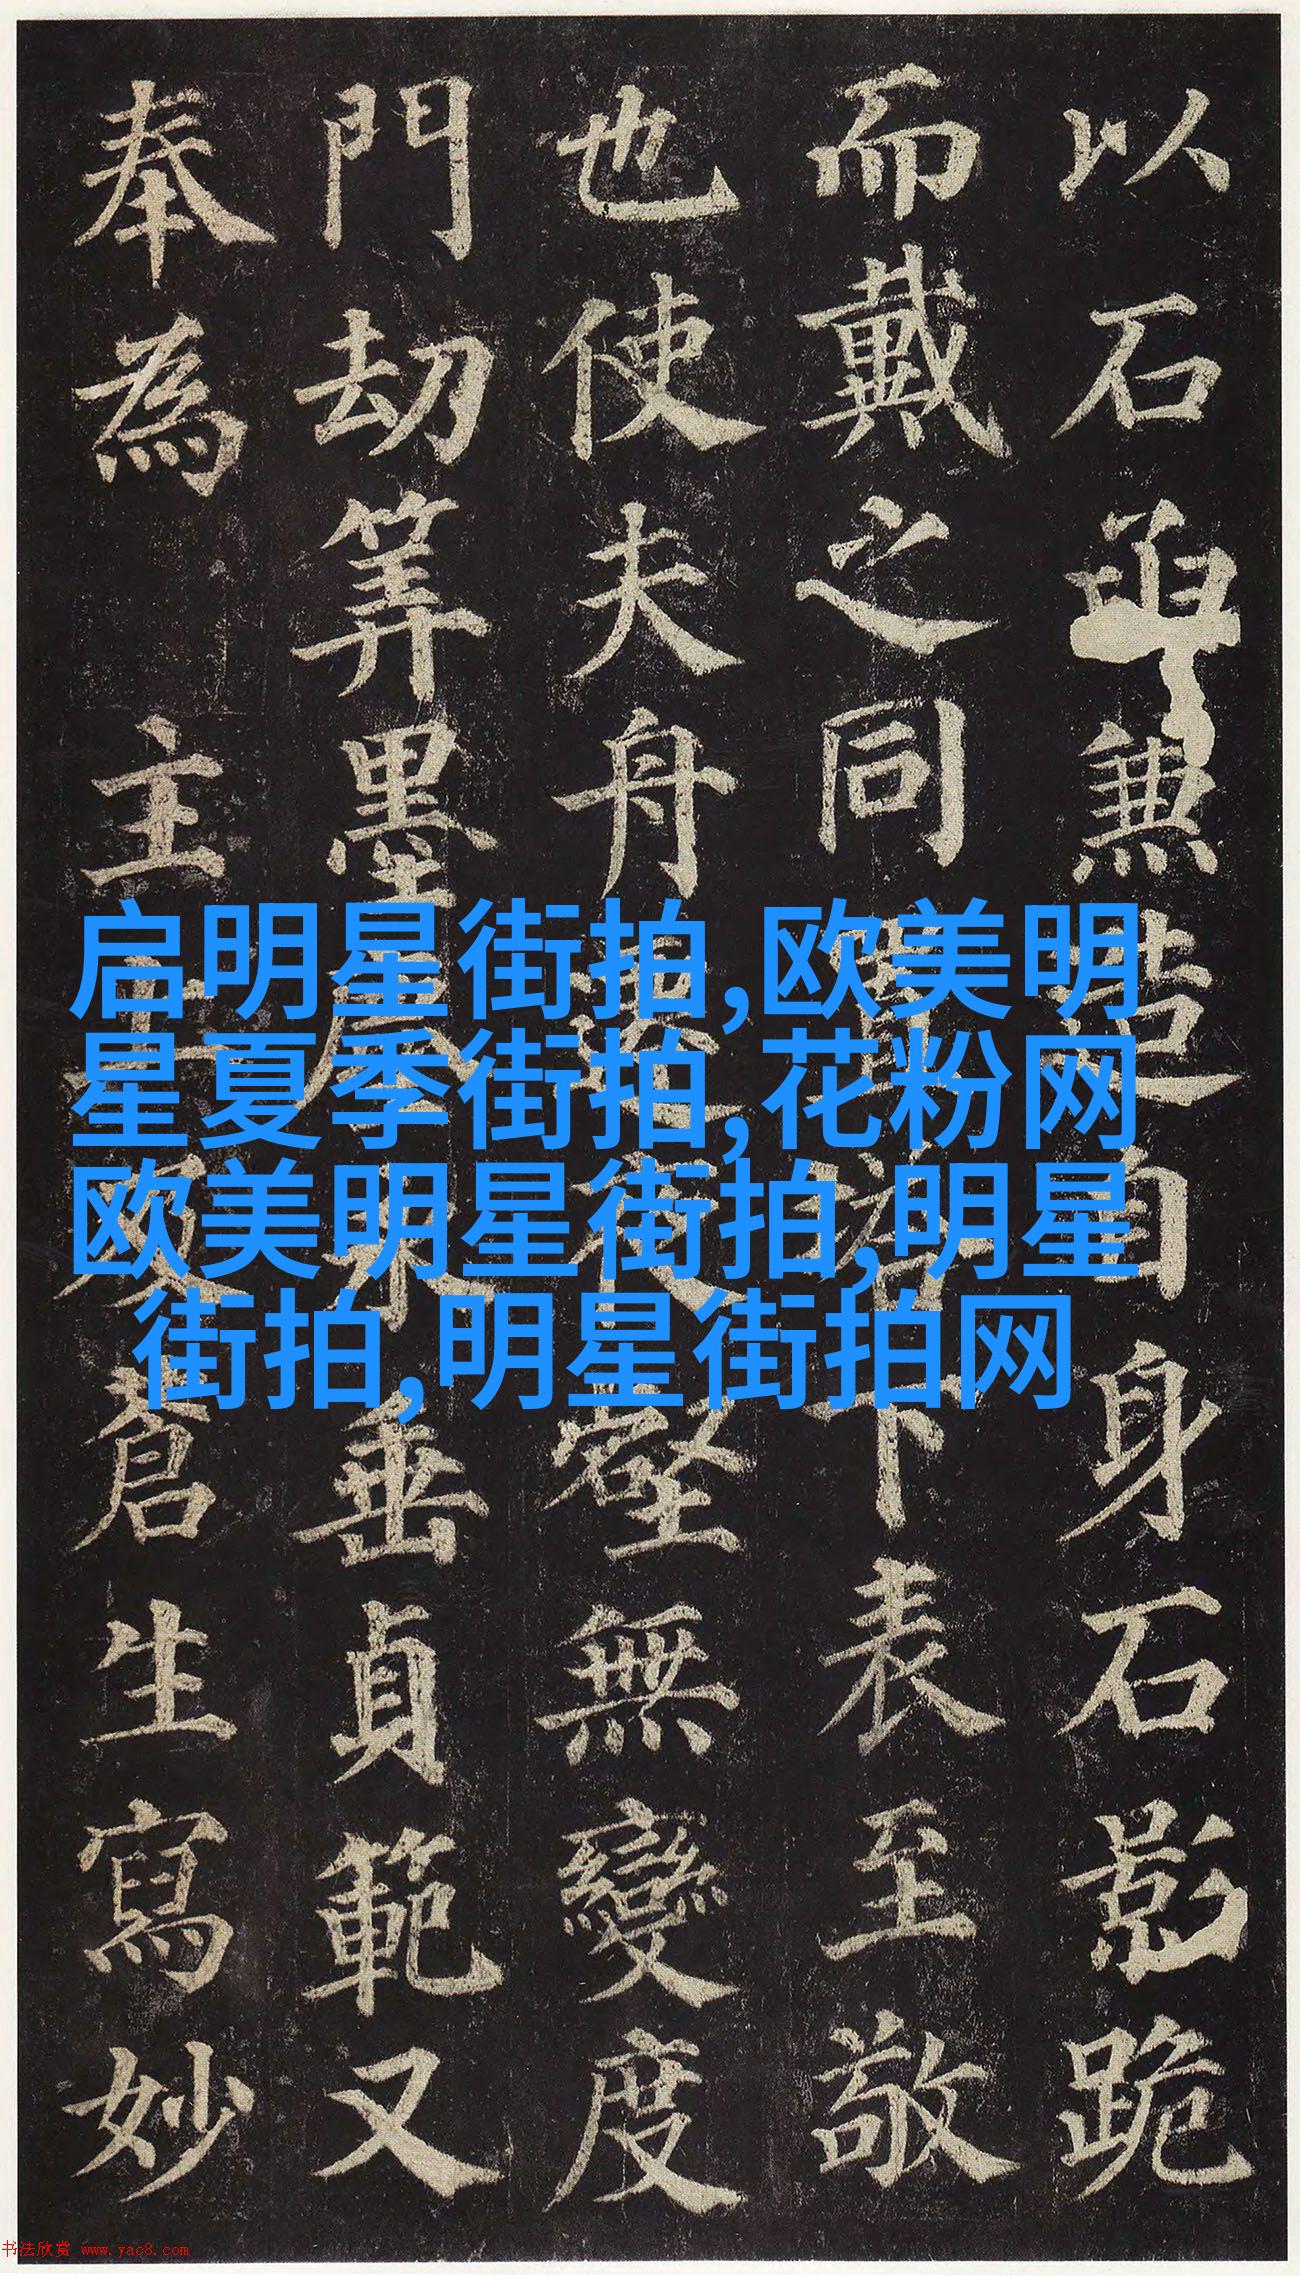 以石函兼造自身石影跪
而戴之同置塔下表至敬
也使夫舟遷夜壑無變度
門劫筭墨塵永垂貞範又
奉為 主上及蒼生寫妙
启明星街拍,欧美明
星夏季街拍,花粉网
欧美明星街拍,明星
街拍,明星街拍网
书法欣赏 www.yac8.com